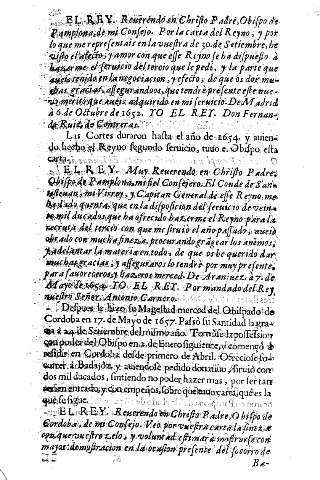 EL REY. Reuerendo en Christo Padre, Obispo de
Pamplona, de mi Consejo. Por la carta del Reyno, y por
lo que me representais en la vuestra de 30. de Setiembre, he
visto el afecto, y amor con que esse Reyno se ha dispuesto à
hazerme el seruicio del tercio que le pedì, y la parte que
aueis tenido en la negociacion, y efecto, de que os doy mu-
chas gracias, assegurandoos, que tendrè presente este nue-
uo merito que aueis adquirido en mi seruicio. De Madrid
à 6. de Octubre de 1652. YO EL REY. Don Fernan-
do Ruiz de Contreras.
Las Cortes duraron hasta el año de 1654. y auien-
do hecho el Reyno segundo seruicio, tuuo el Obispo esta
carta.
EL REY. Muy Reuerendo en Christo Padre,
Obispo de Pamplona, mi del Consejo. El Conde de Santis-
teuan, mi Virrey, y Capitan General de esse Reyno, me
ha dado quenta, que en la disposicion del seruicio de vein-
te mil ducados, que ha ofrecido hazerme el Reyno para la
recruta del tercio con que me siruiò el año passado, aueis
obrado con mucha fineza, procurando grangear los animos,
y adelantar la materia en todo, de que os he querido dar
muchas gracias, y asseguraros lo tendrè por muy presente,
para fauoreceros, y hazeros merced. De Aranjuez, à 7. de
Mayo de 1654. YO EL REY. Por mandado del Rey
nuestro Señor. Antonio Carnero.
Despues le hizo su Magestad merced del Obispado de
Cordoba en 17. de Mayo de 1657. Passò su Santidad la gra-
cia à 24. de Setiembre del mismo año. Tomòse la possession
con poder del Obispo en 2. de Enero siguiente, y començò à
residir en Cordoba desde primero de Abril. Ofreciose so-
correr à Badajòz, y auiendose pedido donatiuo, siruiò con
dos mil ducados, sintiendo no poder hazer mas, por ser tan
recien entrado, y con empeños, sobre que tuuo carta, que es la
que se sigue.
EL REY. Reuerendo en Christo Padre, Obispo de
Cordoba, de mi Consejo. Veo por vuestra carta la fineza
con que vuestro zelo, y voluntad estimarà mostrarse con
mayor demostracion en la ocasion presente del socorro de
Ba-